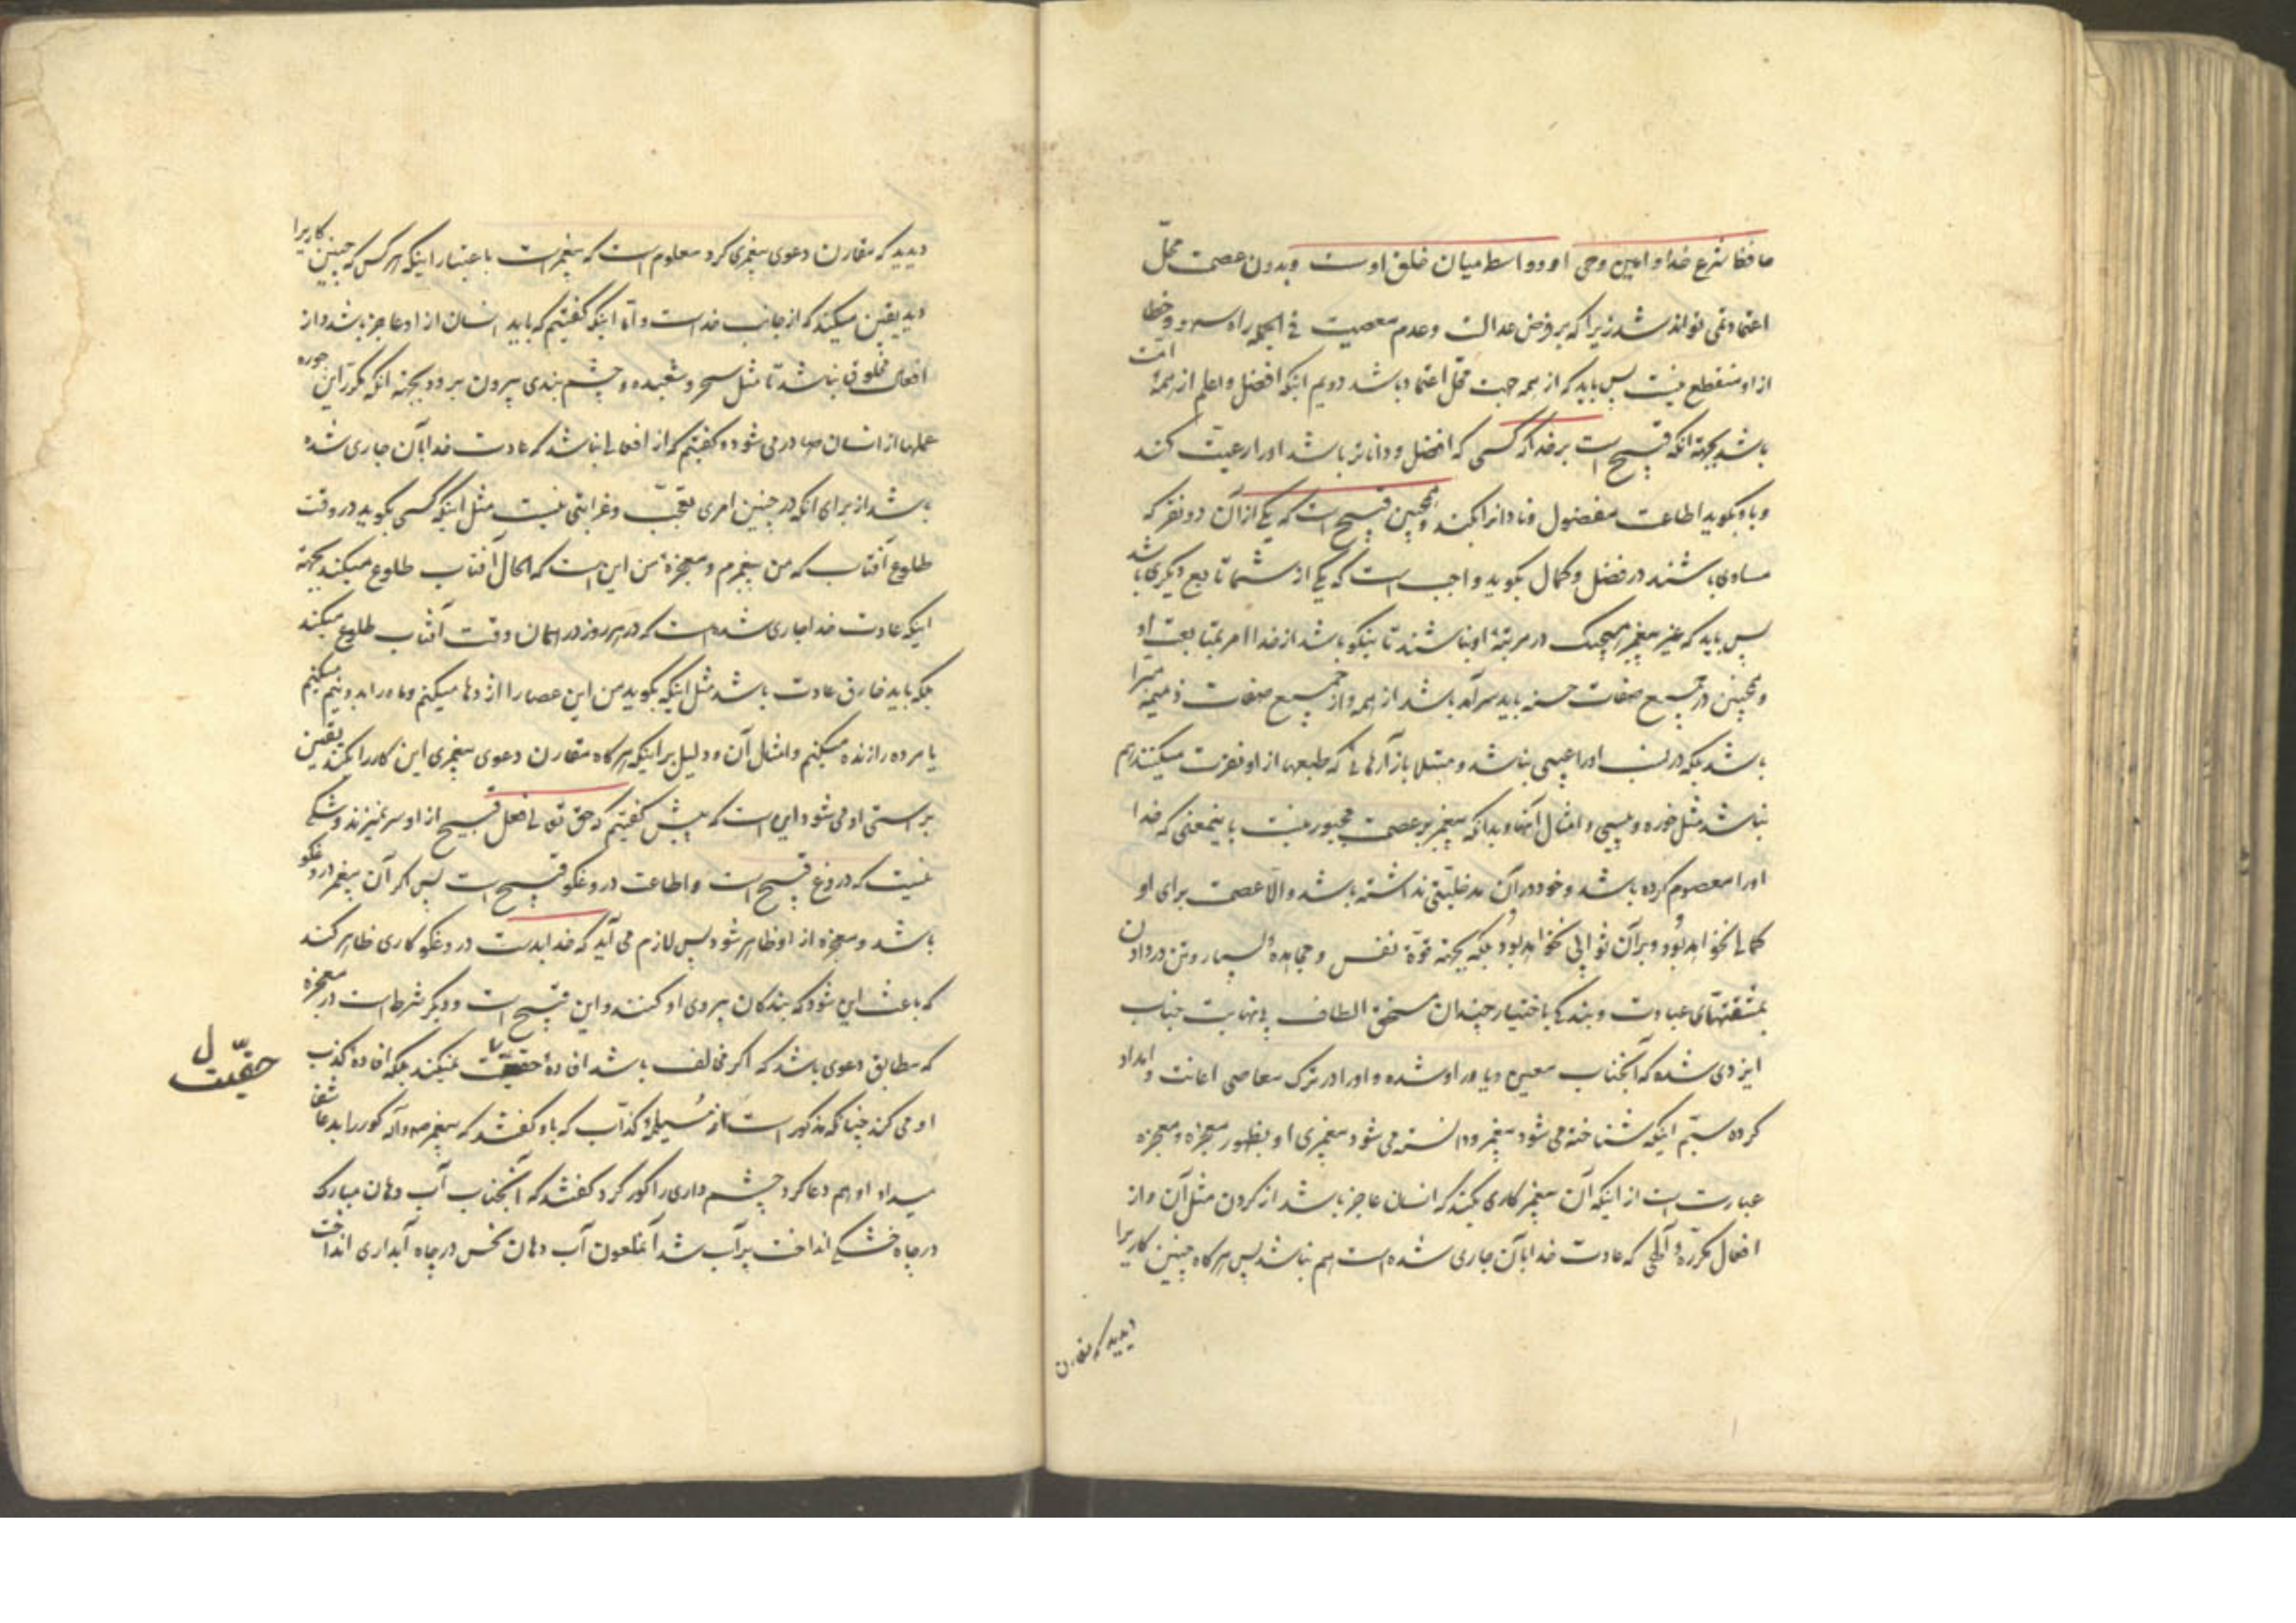 حافظ شرع خدا و امین وحی او و واسطه میان خلق اوست و بدون عصمت محلّ
اعتماد نمی تواند شد زیرا که بر فرض عدالت و عدم معصیت فی الجمله راه سهو و خطا
از او منقطع نیست پس باید که از همه جهت محل اعتماد باشد دویم اینکه افضل و اعلم از همهٔ امت
باشد بجهة آنکه قبیح است بر خدا که کسی که افضل و داناتر باشد او را رعیت کند
و باو بگوید اطاعت مفضول و نادان را بکند و همچنین قبیح است که یکی از آن دو نفر که
مساوی باشند در فضل و کمال بگوید واجب است که یکی از شما تابع دیگری باشد
پس باید که غیر پیغمبر هیچیک در مرتبهٔ او نباشند تا نیکو باشد از خدا امر بمتابعت او
و همچنین در جمیع صفات حسنه باید سرآمد باشد از همه و از جمیع صفات ذمیمه مبرّا
باشد بلکه در نسب او را عیبی نباشد و مبتلا بآزارهائی که طبعها از او نفرت میکنند هم
نباشد مثل خوره و پیسی و امثال آنها و بدانکه پیغمبر بر عصمت مجبور نیست باینمعنی که خدا
او را معصوم کرده باشد و خود در آن مدخلیتی نداشته باشد و الّا عصمت برای او
کمالی نخواهد بود و بر آن ثوابی نخواهد بود بلکه بجهة قوّة نفس و مجاهدهٔ بسیار و تن در دادن
بمشقتهای عبادت و بندگی باختیار چندان مستحق الطاف بی نهایت جناب
ایزدی شده که آنجناب معین و یاور او شده و او را در ترک معاصی اعانت و امداد
کرده سیّم اینکه شناخته می شود پیغمبر و دانسته می شود پیغمبری او بظهور معجزه و معجزه
عبارت است از اینکه آن پیغمبر کاری بکند که انسان عاجز باشد از کردن مثل آن و از
افعال مکرّرهٔ الهی که عادت خدا بآن جاری شده است هم نباشد پس هرگاه چنین کاریرا
دیدید که مقارن
دیدید که مقارن دعوی پیغمبری کرد معلوم است که پیغمبر است باعتبار اینکه هر کس که چنین کاریرا
دید یقین میکند که از جانب خداست و اما اینکه گفتیم که باید انسان از او عاجز باشد و از
افعال مخلوق نباشد تا مثل سحر و شعبده و چشم بندی بیرون برود بجهة آنکه مکرّر این جوره
عملها از انسان صادر می شود و گفتیم که از افعالی نباشد که عادت خدا بآن جاری شده
باشد از برای آنکه در چنین امری تعجّب و غرابتی نیست مثل اینکه کسی بگوید در وقت
طلوع آفتاب که من پیغمبرم و معجزهٔ من این است که الحال آفتاب طلوع میکند بجهة
اینکه عادت خدا جاری شده است که در هر روز در همان وقت آفتاب طلوع میکند
بلکه باید خارق عادت باشد مثل اینکه بگوید من این عصا را اژدها میکنم و ماه را بدو نیم میکنم
یا مرده را زنده میکنم و امثال آن و دلیل بر اینکه هرگاه مقارن دعوی پیغمبری این کار را بکند یقین
براستی او می شود این است که پیش گفتیم که حق تعالی فعل قبیح از او سر نمیزند و شکی
نیست که دروغ قبیح است و اطاعت دروغگو قبیح است پس اگر آن پیغمبر دروغگو
باشد و معجزه از او ظاهر شود پس لازم می آید که خدا بدست دروغگو کاری ظاهر کند
که باعث این شود که بندگان پیروی او کنند و این قبیح است و دیگر شرط است در معجزه
که مطابق دعوی باشد که اگر مخالف باشد افادهٔ حقیّت نمیکند بلکه افادهٔ کذب
حقیّت ل
او می کند چنانکه مذکور است از مُسیلمهٔ کذّاب که باو گفتند که پیغمبر ص و آله کور را بدعا شفا
میداد او هم دعا کرد چشم داری را کور کرد گفتند که آنجناب آب دهان مبارک
در چاه خشکی انداخت پر آب شد آنملعون آب دهان نحس در چاه آبداری انداخت